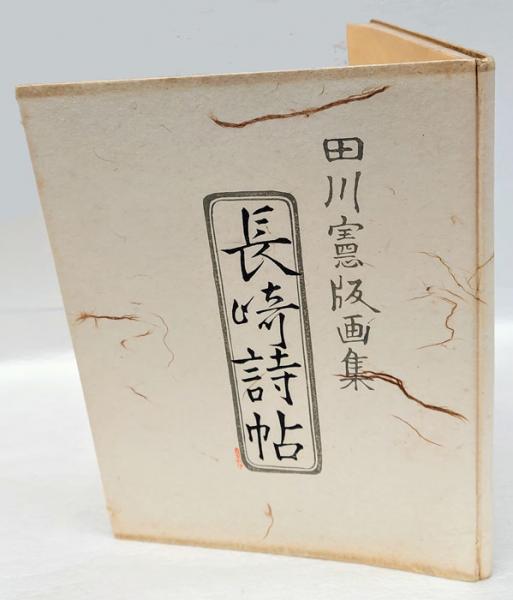 田川憲版画集
長崎詩帖